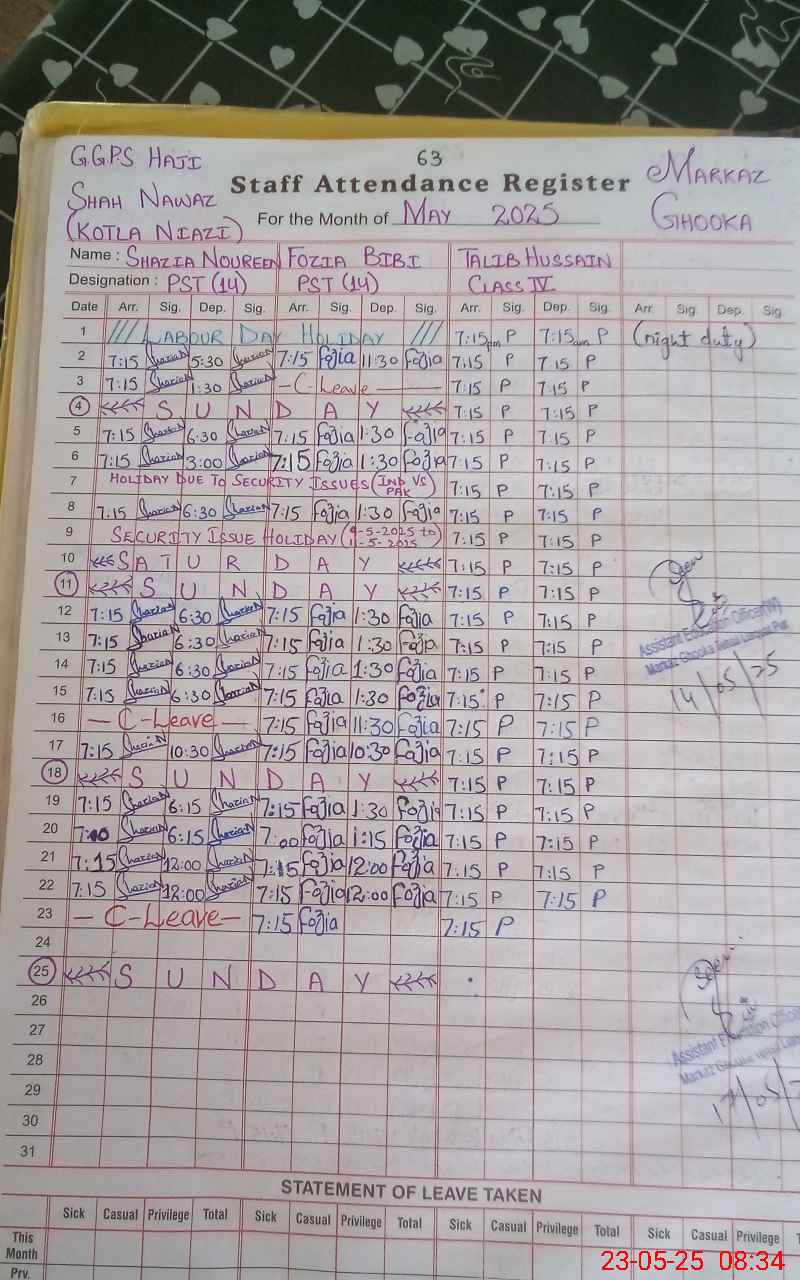 G.G.P.S HAJI
63
MARKAZ
SHAH NAWAZ
Staff Attendance Register
GHOOKA
(KOTLA NIAZI)
For the Month of MAY 2025
Name : SHAZIA NOUREEN FOZIA BIBI TALIB HUSSAIN
Designation : PST (14) PST (14) CLASS IV
Date Arr. Sig. Dep. Sig. Arr. Sig. Dep. Sig. Arr. Sig. Dep. Sig. Arr. Sig. Dep. Sig.
1 /// LABOUR DAY HOLIDAY /// 7:15pm P 7:15am P (night duty)
2 7:15 Shazia N 5:30 Shazia N 7:15 Fozia 11:30 Fozia 7:15 P 7:15 P
3 7:15 Shazia N 1:30 Shazia N -C-Leave- 7:15 P 7:15 P
4 SUNDAY 7:15 P 7:15 P
5 7:15 Shazia N 6:30 Shazia N 7:15 Fozia 1:30 Fozia 7:15 P 7:15 P
6 7:15 Shazia N 3:00 Shazia N 7:15 Fozia 1:30 Fozia 7:15 P 7:15 P
7 HOLIDAY DUE TO SECURITY ISSUES (IND VS PAK) 7:15 P 7:15 P
8 7:15 Shazia N 6:30 Shazia N 7:15 Fozia 1:30 Fozia 7:15 P 7:15 P
9 SECURITY ISSUE HOLIDAY (9-5-2025 to 11-5-2025) 7:15 P 7:15 P
10 SATURDAY 7:15 P 7:15 P
11 SUNDAY 7:15 P 7:15 P
12 7:15 Shazia N 6:30 Shazia N 7:15 Fozia 1:30 Fozia 7:15 P 7:15 P
13 7:15 Shazia N 6:30 Shazia N 7:15 Fozia 1:30 Fozia 7:15 P 7:15 P
Assistant Education Officer(W)
14 7:15 Shazia N 6:30 Shazia N 7:15 Fozia 1:30 Fozia 7:15 P 7:15 P
Markaz Ghooka
15 7:15 Shazia N 6:30 Shazia N 7:15 Fozia 1:30 Fozia 7:15 P 7:15 P
14/05/25
16 -C-Leave- 7:15 Fozia 11:30 Fozia 7:15 P 7:15 P
17 7:15 Shazia N 10:30 Shazia N 7:15 Fozia 10:30 Fozia 7:15 P 7:15 P
18 SUNDAY 7:15 P 7:15 P
19 7:15 Shazia N 6:15 Shazia N 7:15 Fozia 1:30 Fozia 7:15 P 7:15 P
20 7:00 Shazia N 6:15 Shazia N 7:00 Fozia 1:15 Fozia 7:15 P 7:15 P
21 7:15 Shazia N 12:00 Shazia N 7:15 Fozia 12:00 Fozia 7:15 P 7:15 P
22 7:15 Shazia N 12:00 Shazia N 7:15 Fozia 12:00 Fozia 7:15 P 7:15 P
23 -C-Leave- 7:15 Fozia 7:15 P
24
25 SUNDAY
26
27
Assistant Education Officer
28
Markaz Ghooka
29
30
31
STATEMENT OF LEAVE TAKEN
Sick Casual Privilege Total Sick Casual Privilege Total Sick Casual Privilege Total Sick Casual Privilege
This Month
Prv.
23-05-25 08:34